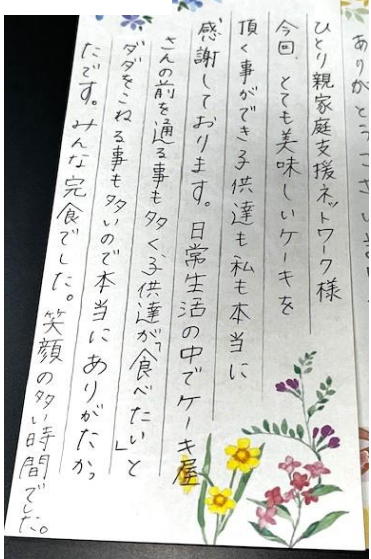 ありがとうござい
ひとり親家庭支援ネットワーク様
今回、とても美味しいケーキを
頂く事ができ子供達も私も本当に
感謝しております。日常生活の中でケーキ屋
さんの前を通る事も多く、子供達が「食べたい」と
ダダをこねる事も多いので本当にありがたかっ
たです。みんな完食でした。笑顔の多い時間でした。